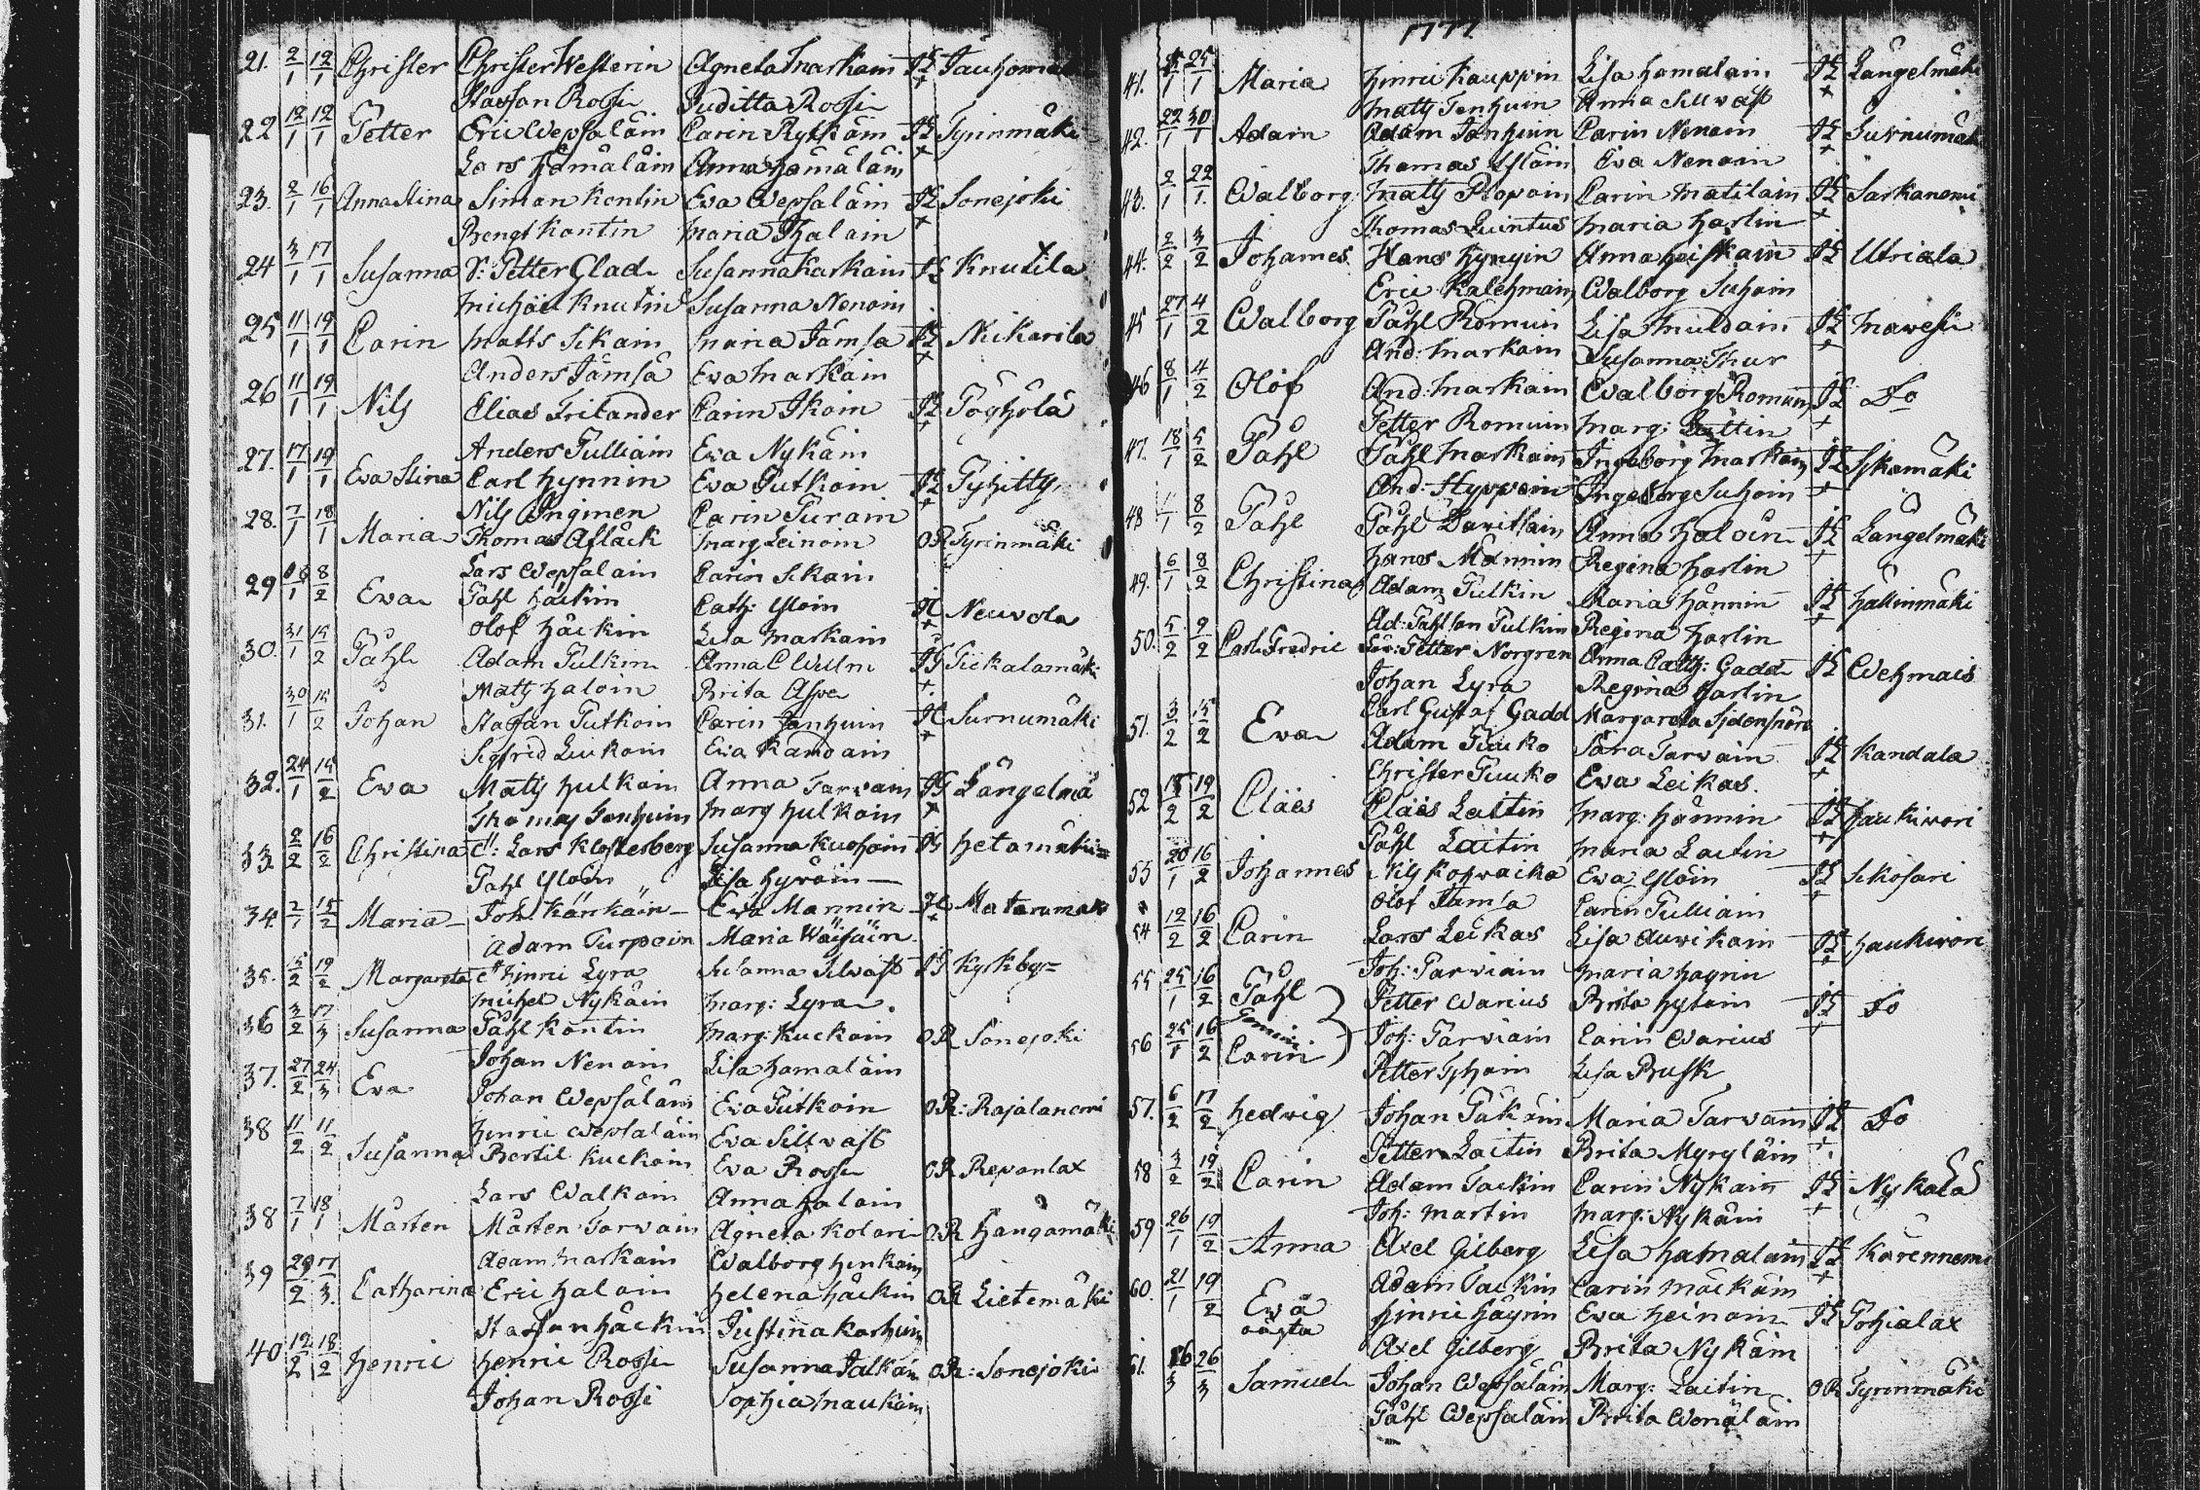 1777
21. 2/1 12/1 Christer Christer Westerin Agneta Markain
Staffan Rossi Juditta Rossi
22 12/1 12/1 Petter Eric Wepsäläin Carin Rytkäin Pyrinmäki
Lars Hämäläin Anna Hämäläin
23. 2/1 16/1 Anna Stina Simon Kontin Eva Wepsäläin Sonejoki
Bengt Kontin Maria Thalain
24 3/1 17/1 Susanna S: Petter Glad Susanna Karkain Knutila
Michäel Knutin Susanna Nenoin
25 11/1 19/1 Carin Matts Sikain Maria Jämsä Nikarila
Anders Jämsä Eva Markain
26 11/1 19/1 Nils Elias Fritander Carin Ikoin Pöyhölä
Anders Pulliain Eva Nykäin
27. 17/1 19/1 Eva Stina Carl Hynnin Eva Putkoin Pyhitty
Nils Inginen Carin Turain
28. 7/1 18/1 Maria Thomas Afläck Marg Leinoin OR Pyrinmäki
Lars Wepsalain Carin Sikain
29 /1 8/2 Eva Påhl Häckin Cath: Yloin Neuvola
Olof Häckin Lisa Markain
30. 31/1 15/2 Påhl Adam Pulkin Anna C Wulin Pickalamäki
Matts Haloin Brita Asper
31. 30/1 15/2 Johan Staffan Putkoin Carin Janhuin Surnumäki
Sigfrid Luukain Eva Kandain
32. 24/1 15/2 Eva Matts Hulkain Anna Tarvain Längelmä
Thomas Tenhuin Marg Hulkain
33 2/2 16/2 Christina C: Lars Klosterberg Susanna Kuohain Hetamäki
Påhl Yloin Lisa Hyväin
34. 2/1 15/2 Maria Joh: Kärkäin Eva Mannin Mataramäki
Adam Turpoin Maria Wäisäin
35. 15/2 19/2 Margareta C: Hinric Lyra Susanna Silvast Kyrkby
Michel Nykäin Marg: Lyra
36 3/2 17/3 Susanna Påhl Kontin Marg: Kuckain OR Sonejoki
Johan Nenoin Lisa Hamaläin
37. 27/2 24/3 Eva Johan Wepsäläin Eva Putkoin OR: Rajalanemi
Henric Wepsaläin Eva Sillvast
38 11/2 11/2 Susanna Bertil Kuckain Eva Rossi OR Reponlax
Lars Walkain Anna Halain
38 7/1 18/1 Mårten Mårten Tarvain Agneta Kolari OR Hangamäki
Adam Markain Walborg Henkain
39 29/2 17/3. Catharina Eric Halain Helena Häckin OR Lietemäki
Staffan Häckin Justina Karhuin
40 12/2 18/2 Henric Henric Rossi Susanna Jalkain OR: Sonejoki
Johan Rossi Sophia Maukain
41. /1 25/1 Maria Hinric Kauppin Lisa Hamalain Längelmäki
Matts Tenhuin Anna Sillvast
42. 22/1 30/1 Adam Adam Janhuin Carin Nenoin Surnumäki
Thomas Afläin Eva Nenoin
43. 2/1 22/1. Walborg Matts Ropoin Carin Matilain Sarkanemi
Thomas Quintus Maria Harlin
44. 2/2 3/2 Johannes Hans Hynyin Anna Heiskain Utriala
Eric Kalehmain Walborg Suhoin
45 27/1 4/2 Walborg Påhl Romuin Lisa Muldain Mavesi
And: Markain Susanna Thur
46 8/1 4/2 Olof And: Markain Walborg Romuin Do
Petter Romuin Marg: Luttin
47. 18/1 5/2 Påhl Påhl Markain Ingeborg Markain Sikamäki
And: Hyvoin Ingeborg Suhoin
48 /1 8/2 Påhl Påhl Davitsain Anna Haloin Längelmäki
Hans Männin Regina Harlin
49. 6/1 8/2 Christina Adam Pulkin Maria Hännin Hällinmäki
Ad: Påhlson Pulkin Regina Harlin
50. 5/2 9/2 Carl Fredric Petter Norgren Anna Cath: Gadd Wehmais
Johan Lyra Regina Harlin
Carl Gustaf Gadd Margareta
51. 3/2 15/2 Eva Adam Puuko Sara Tarvain Kandala
Christer Puuko Eva Leikas.
52 18/2 19/2 Claës Claës Laitin Marg: Hännin Haukivori
Påhl Laitin Maria Laitin
53 20/1 16/2 Johannes Nils Kopvaicka Eva Yloin Sikosari
Olof Jämsä Carin Pulliain
54 12/2 16/2 Carin Lars Leikas Lisa Auvikain Haukivori
Joh: Parviain Maria Hayrin
55 25/1 16/2 Påhl Petter Warius Brita Hytoin Do
Gemini
56 25/1 16/2 Carin Joh: Parviain Carin Warius
Petter Tyhoin Lisa Rusk
57. 6/2 17/2 Hedwig Johan Päkäin Maria Tarvain Do
Petter Laitin Brita Myryläin
58 3/2 19/2 Carin Adam Tackin Carin Nykain Nykälä
Joh: Martin Marg: Nykäin
59 26/1 19/2 Anna Axel Gilberg Lisa Hamalain Karennemi
Adam Tackin Carin Mäckäin
60. 21/1 19/2 Eva Hinric Häyrin Eva Heinoin Pohialax
oägta Axel Gilberg Brita Nykäin
61. 16/3 26/3 Samuel Johan Wepsäläin Marg: Laitin OR Pyrinmäki
Påhl Wepsäläin Brita Wenäläin